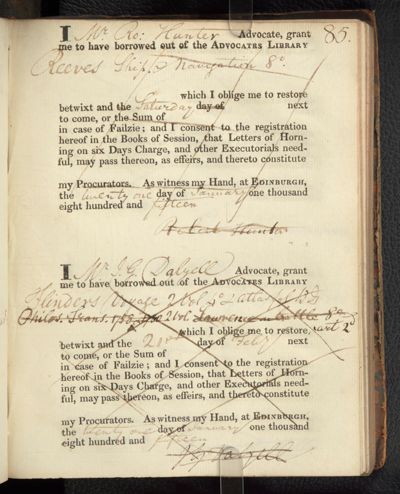 85.
I Mr Ro: Hunter Advocate, grant
me to have borrowed out of the ADVOCATES LIBRARY
Reeves Ship.g & Navigation 8o.
which I oblige me to restore
betwixt and the Saturday day of next
to come, or the Sum of
in case of Failzie; and I consent to the registration
hereof in the Books of Session, that Letters of Horn-
ing on six Days Charge, and other Executorials need-
ful, may pass thereon, as effeirs, and thereto constitute
my Procurators. As witness my Hand, at EDINBURGH,
the twenty one day of January one thousand
eight hundred and fifteen
Robert Hunter
I Mr J. G. Dalyell Advocate, grant
me to have borrowed out of the ADVOCATES LIBRARY
Flinders Voyage 2 Vol. 4o & Atlas
Philos. Trans. 2 Vol. Lawrence on Cattle 8o
part 2d
which I oblige me to restore,
betwixt and the day of Feby next
to come, or the Sum of
in case of Failzie; and I consent to the registration
hereof in the Books of Session, that Letters of Horn-
ing on six Days Charge, and other Executorials need-
ful, may pass thereon, as effeirs, and thereto constitute
my Procurators. As witness my Hand, at EDINBURGH,
the twenty one day of January one thousand
eight hundred and fifteen
J G Dalyell